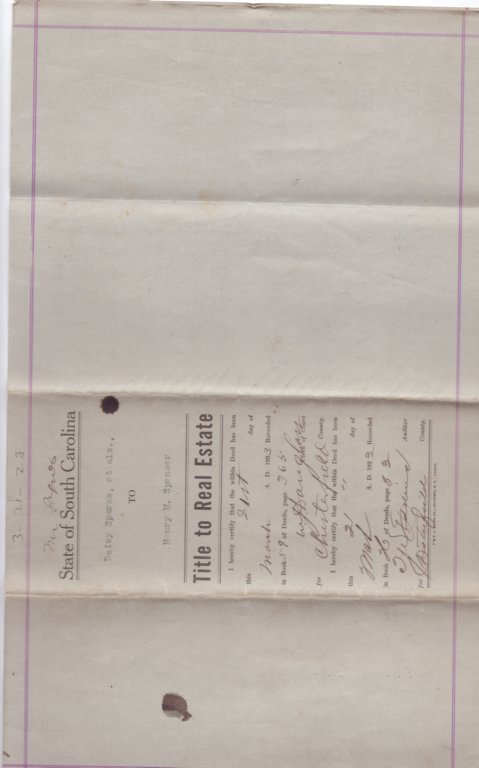 3-21-23
State of South Carolina
Daisy Sparks, et als.,
TO
Henry M. Spencer
Title to Real Estate
I hereby certify that the within Deed has been
this 21st day of
March A. D. 1923 Recorded
in Book 59 of Deeds, page 365
for Chesterfield County.
I hereby certify that the within Deed has been
this 21 day of
Mch A. D. 1923 Recorded
in Book of Deeds, page 82
Auditor
for Chesterfield County.